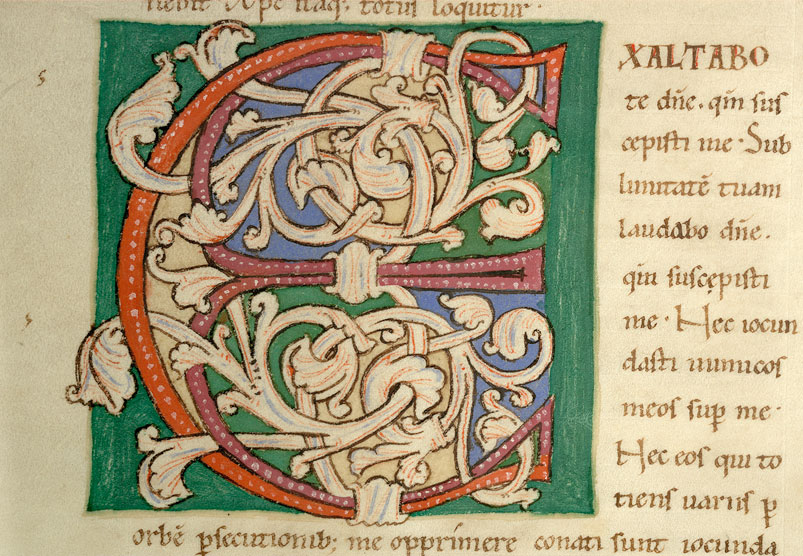 nebit Xpc itaq. totus loquitur.
EXALTABO
te dñe. qm̄ sus
cepisti me. Sub
limitatē tuam
laudabo dñe.
qm̄ suscepisti
me. Nec iocun
dasti inimicos
meos sup̄ me.
Nec eos qui to
tiens uariis p̱
orbē p̱secutionib; me opprimere conati sunt iocunda